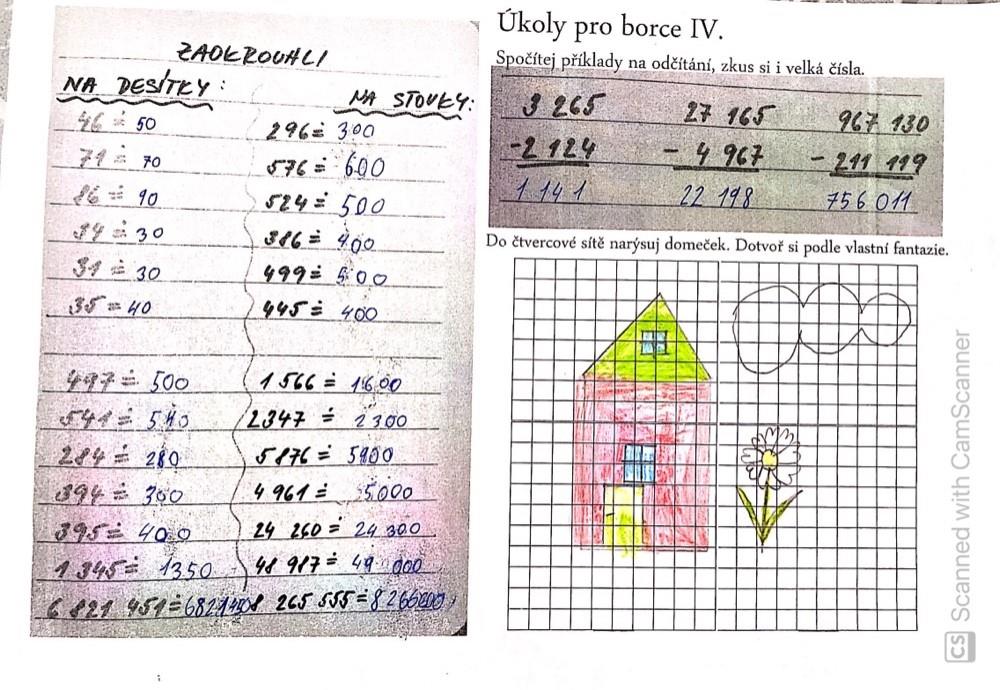 ZAOKROUHLI
NA DESÍTKY:
NA STOVKY:
46 ≐ 50
296 ≐ 300
71 ≐ 70
576 ≐ 600
86 ≐ 90
524 ≐ 500
34 ≐ 30
386 ≐ 400
31 ≐ 30
499 ≐ 500
35 ≐ 40
445 ≐ 400
497 ≐ 500
1 566 ≐ 1600
541 ≐ 540
2347 ≐ 2300
284 ≐ 280
5876 ≐ 5900
394 ≐
4 961 ≐ 5000
395 ≐ 400
24 260 ≐ 24 300
1 345 ≐ 1350
48 987 ≐ 49 000
6 821 451 ≐
8 265 555 ≐
Úkoly pro borce IV.
Spočítej příklady na odčítání, zkus si i velká čísla.
3 265 27 165 967 130
-2 124 - 4 967 - 211 119
1 141 22 198 756 011
Do čtvercové sítě narýsuj domeček. Dotvoř si podle vlastní fantazie.
CS Scanned with CamScanner